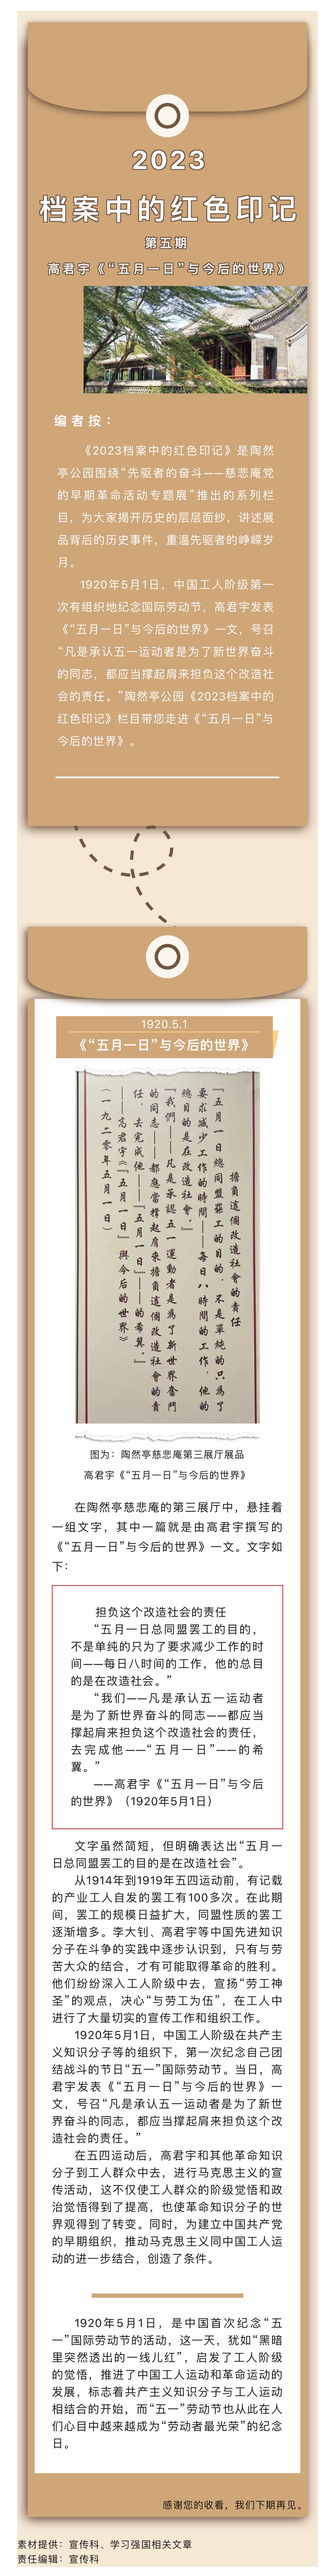 2023
档案中的红色印记
第五期
高君宇《“五月一日”与今后的世界》
编者按：
《2023档案中的红色印记》是陶然
亭公园围绕“先驱者的奋斗——慈悲庵党
的早期革命活动专题展”推出的系列栏
目，为大家揭开历史的层层面纱，讲述展
品背后的历史事件，重温先驱者的峥嵘岁
月。
1920年5月1日，中国工人阶级第一
次有组织地纪念国际劳动节，高君宇发表
《“五月一日”与今后的世界》一文，号召
“凡是承认五一运动者是为了新世界奋斗
的同志，都应当撑起肩来担负这个改造社
会的责任。”陶然亭公园《2023档案中的
红色印记》栏目带您走进《“五月一日”与
今后的世界》。
1920.5.1
《“五月一日”与今后的世界》
擔負這個改造社會的責任
『五月一日總同盟罷工的目的，不是單純的只為了
要求減少工作的時間——每日八時間的工作，他的
總目的是在改造社會。』
『我們——凡是承認五一運動者是為了新世界奮鬥
的同志——都應當撐起肩來擔負這個改造社會的責
任，去完成他——『五月一日』——的希冀。』
——高君宇《『五月一日』與今后的世界》
（一九二零年五月一日）
图为：陶然亭慈悲庵第三展厅展品
高君宇《“五月一日”与今后的世界》
在陶然亭慈悲庵的第三展厅中，悬挂着
一组文字，其中一篇就是由高君宇撰写的
《“五月一日”与今后的世界》一文。文字如
下：
担负这个改造社会的责任
“五月一日总同盟罢工的目的，
不是单纯的只为了要求减少工作的时
间——每日八时间的工作，他的总目
的是在改造社会。”
“我们——凡是承认五一运动者
是为了新世界奋斗的同志——都应当
撑起肩来担负这个改造社会的责任，
去完成他——“五月一日”——的希
冀。”
——高君宇《“五月一日”与今后
的世界》（1920年5月1日）
文字虽然简短，但明确表达出“五月一
日总同盟罢工的目的是在改造社会”。
从1914年到1919年五四运动前，有记载
的产业工人自发的罢工有100多次。在此期
间，罢工的规模日益扩大，同盟性质的罢工
逐渐增多。李大钊、高君宇等中国先进知识
分子在斗争的实践中逐步认识到，只有与劳
苦大众的结合，才有可能取得革命的胜利。
他们纷纷深入工人阶级中去，宣扬“劳工神
圣”的观点，决心“与劳工为伍”，在工人中
进行了大量切实的宣传工作和组织工作。
1920年5月1日，中国工人阶级在共产主
义知识分子等的组织下，第一次纪念自己团
结战斗的节日“五一”国际劳动节。当日，高
君宇发表《“五月一日”与今后的世界》一
文，号召“凡是承认五一运动者是为了新世
界奋斗的同志，都应当撑起肩来担负这个改
造社会的责任。”
在五四运动后，高君宇和其他革命知识
分子到工人群众中去，进行马克思主义的宣
传活动，这不仅使工人群众的阶级觉悟和政
治觉悟得到了提高，也使革命知识分子的世
界观得到了转变。同时，为建立中国共产党
的早期组织，推动马克思主义同中国工人运
动的进一步结合，创造了条件。
1920年5月1日，是中国首次纪念“五
一”国际劳动节的活动，这一天，犹如“黑暗
里突然透出的一线儿红”，启发了工人阶级
的觉悟，推进了中国工人运动和革命运动的
发展，标志着共产主义知识分子与工人运动
相结合的开始，而“五一”劳动节也从此在人
们心目中越来越成为“劳动者最光荣”的纪念
日。
感谢您的收看，我们下期再见。
素材提供：宣传科、学习强国相关文章
责任编辑：宣传科